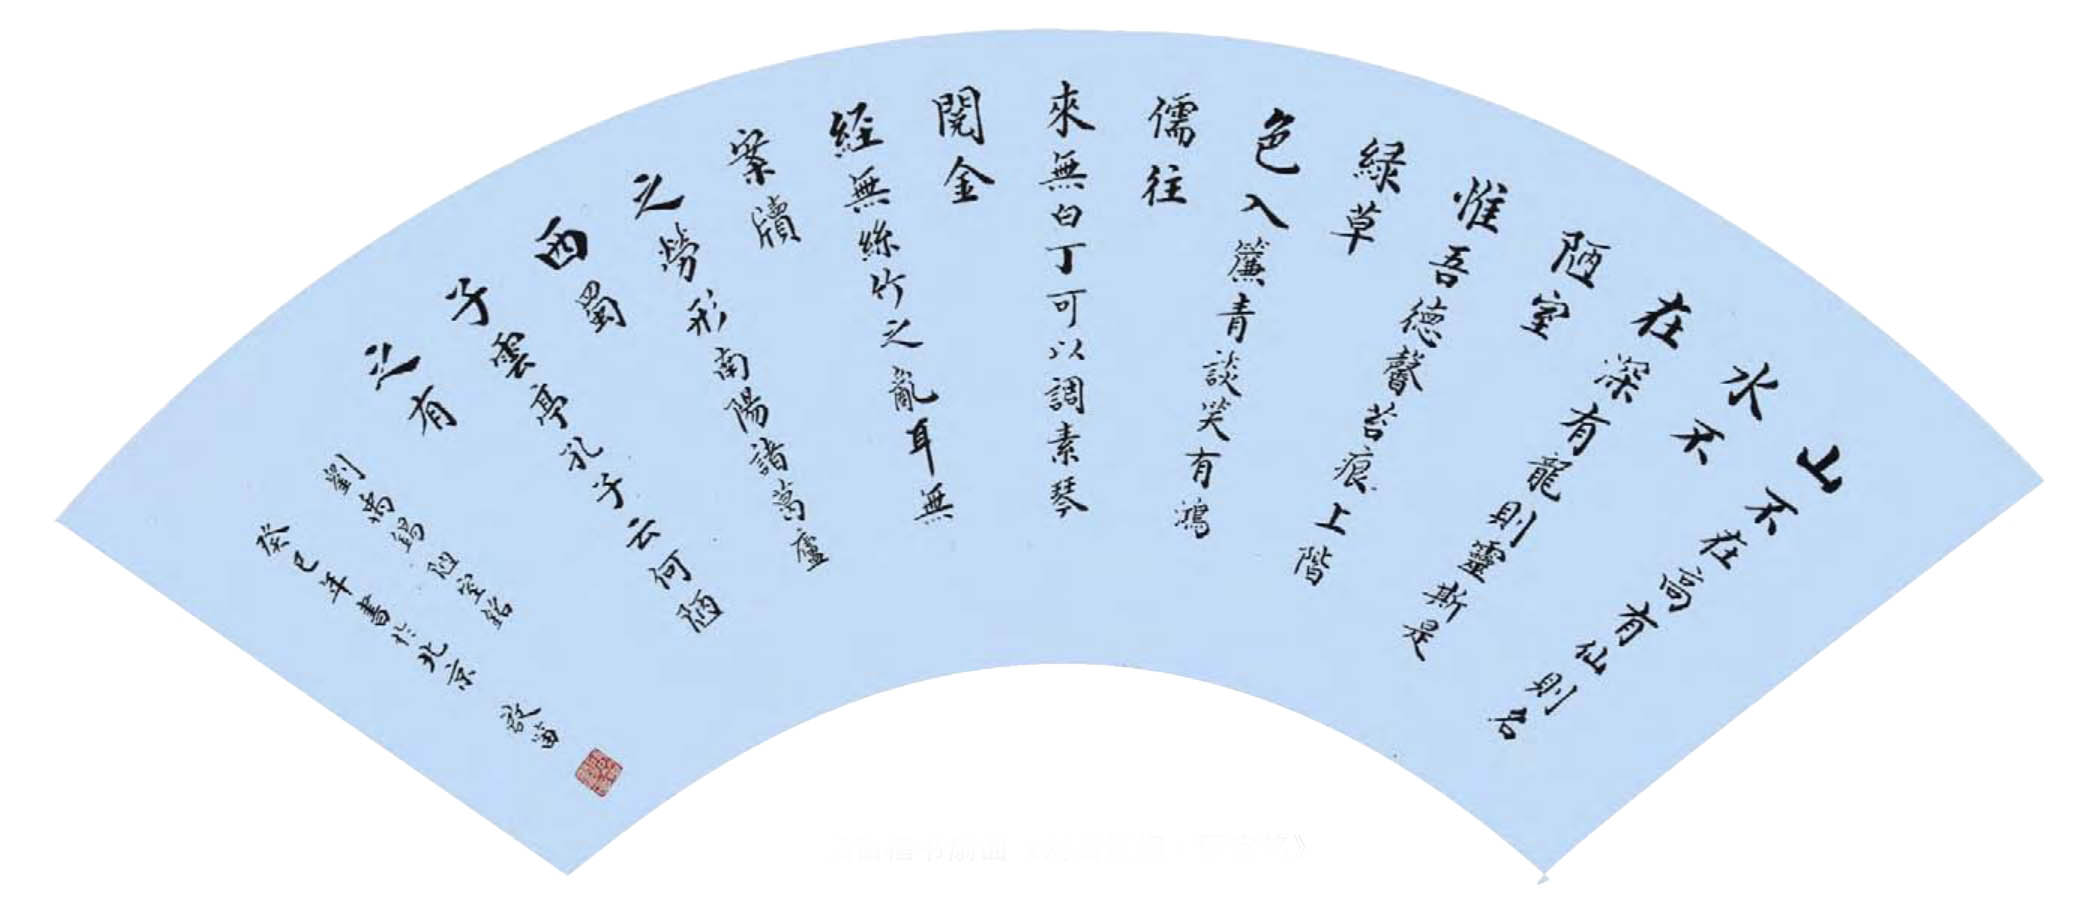 山不在高有仙則名
水不
在深有龍則靈斯是
陋室
惟吾德馨苔痕上階
緑草
色入簾青談笑有鴻
儒往
來無白丁可以調素琴
閱金
經無絲竹之亂耳無
案牘
之勞形南陽諸葛廬
西蜀
子雲亭孔子云何陋
之有
劉禹錫陋室銘
癸巳年書於北京